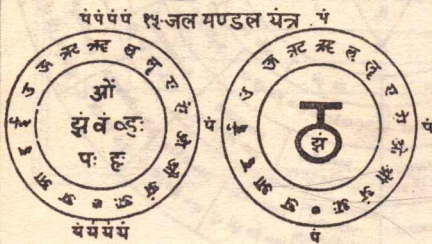 पं पं पं पं १५-जल मण्डल यंत्र पं
अ आ इ ई उ ऊ ऋ ॠ ऌ ॡ ए ऐ ओ औ अं अः
ओं
झं वं
पः हः
पं
यं यं यं यं
अ आ इ ई उ ऊ ऋ ॠ ऌ ॡ ए ऐ ओ औ अं अः
झं
पं
पं